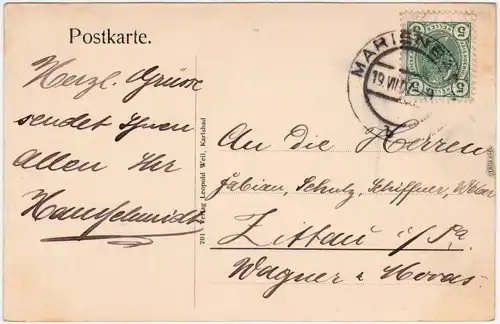 Postkarte.
Herzl. Grüsse
sendet Ihnen
Allen Ihr
Hans Schmidt
201 Verlag Leopold Weil, Karlsbad
MARIENB
19.VII
5 5
An die Herren
Fabian, Schulz, Schiffner,
Zittau i/Sa.
Wagner & Moras.